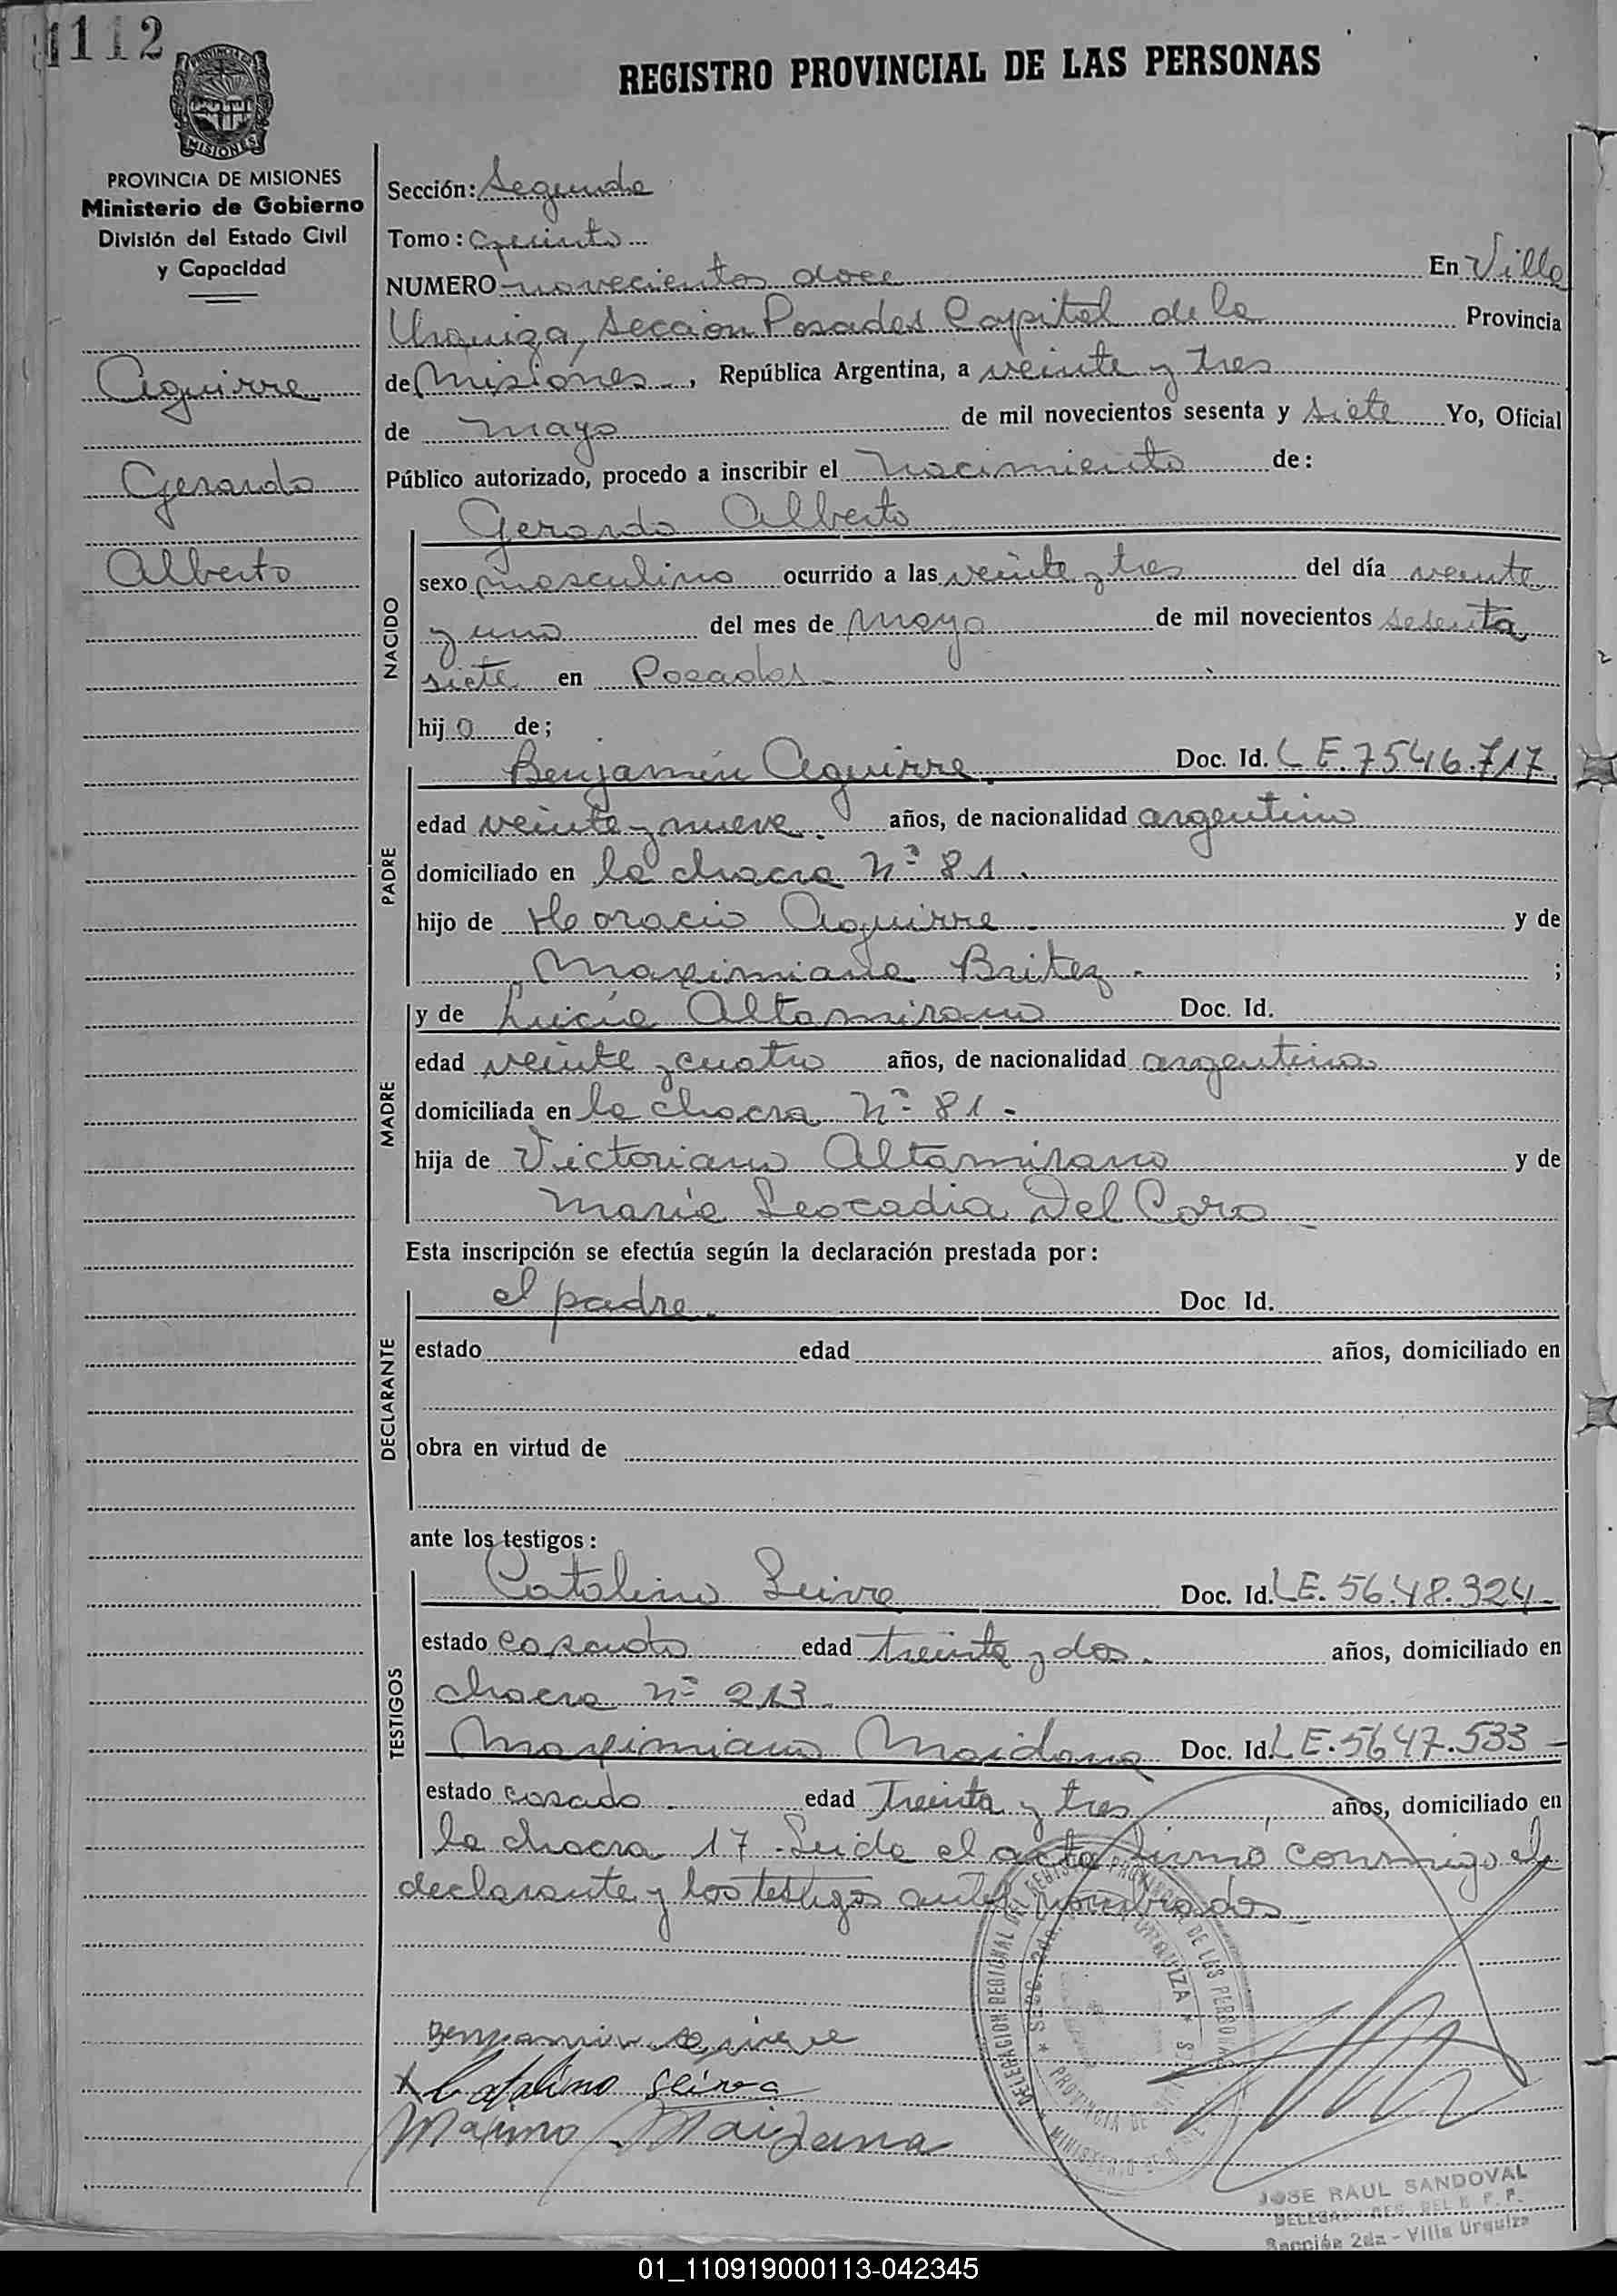 1112
REGISTRO PROVINCIAL DE LAS PERSONAS
PROVINCIA DE MISIONES
MISIONES
PROVINCIA DE MISIONES
Ministerio de Gobierno
División del Estado Civil
y Capacidad
Aguirre
Gerardo
Alberto
Sección: Segunda
Tomo: Quinto
NUMERO novecientos doce En Villa
Urquiza, Sección Posadas Capital de la Provincia
de Misiones, República Argentina, a veinte y tres
de mayo de mil novecientos sesenta y siete Yo, Oficial
Público autorizado, procedo a inscribir el nacimiento de:
NACIDO
Gerardo Alberto
sexo masculino ocurrido a las veinte y tres del día veinte
y uno del mes de Mayo de mil novecientos sesenta
siete en Posadas.-
hijo de;
PADRE
Benjamín Aguirre. Doc. Id. LE.7546.717.
edad veinte y nueve. años, de nacionalidad argentino
domiciliado en la chacra Nº 81.
hijo de Horacio Aguirre. y de
Maximiana Britez.- ;
MADRE
y de Lucía Altamirano Doc. Id.
edad veinte y cuatro años, de nacionalidad argentina
domiciliada en la chacra Nº 81.-
hija de Victoriano Altamirano y de
María Leocadia Del Coro
Esta inscripción se efectúa según la declaración prestada por:
DECLARANTE
el padre. Doc Id.
estado edad años, domiciliado en
obra en virtud de
ante los testigos:
TESTIGOS
Catalino Leiva Doc. Id. LE. 5648.324-
estado casado edad treinta y dos. años, domiciliado en
chacra Nº 213.
Maximiano Maidana Doc. Id. LE.5647.533-
estado casado. edad treinta y tres años, domiciliado en
la chacra 17.-Leida el acta firmó conmigo el
declarante y los testigos antes nombrados
Benjamin
Catalino Leiva
Maximo Maidana
DELEGACION REGIONAL DEL REGISTRO PROVINCIAL DE LAS PERSONAS
JOSE RAUL SANDOVAL
Sección 2da - Villa Urquiza
01_110919000113-042345